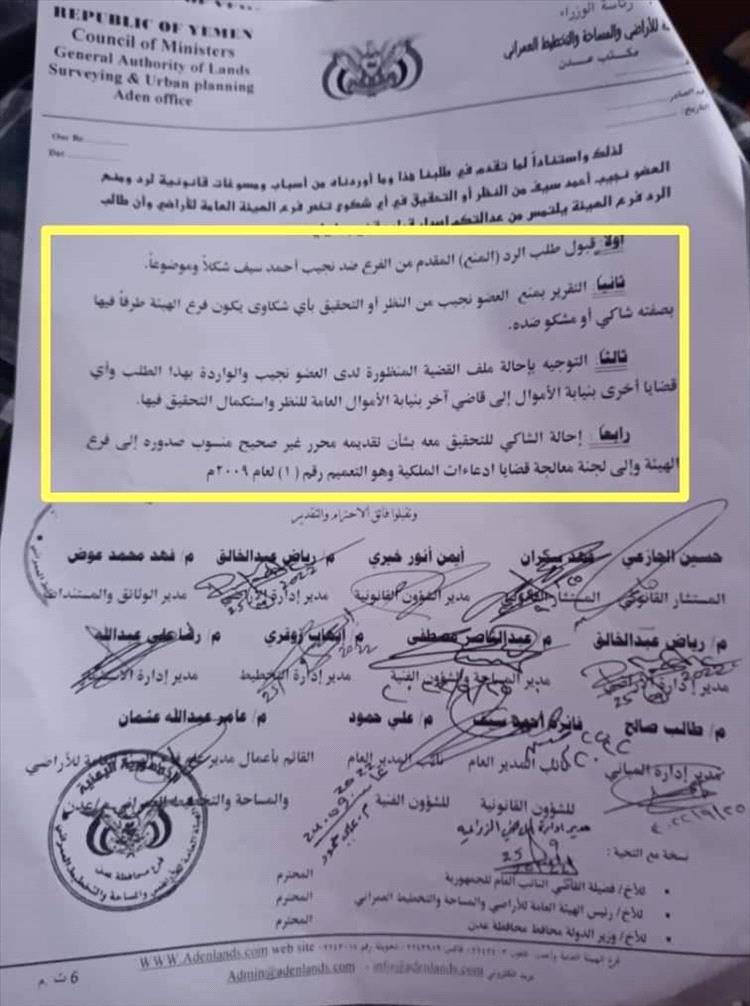 REPUBLIC OF YEMEN
Council of Ministers
General Authority of Lands
Surveying & Urban planning
Aden office
رئاسة الوزراء
للأراضي والمساحة والتخطيط العمراني
مكتب عدن
رقم الصادر
التاريخ:
لذلك واستناداً لما تقدم في طلبنا هذا وما أوردناه من أسباب ومسوغات قانونية لرد ومنع
العضو نجيب أحمد سيف من النظر أو التحقيق في أي شكوى تخص فرع الهيئة العامة للأراضي وأن طالب
الرد فرع الهيئة يلتمس من عدالتكم
أولاً: قبول طلب الرد (المنع) المقدم من الفرع ضد نجيب أحمد سيف شكلاً وموضوعاً.
ثانياً: التقرير بمنع العضو نجيب من النظر أو التحقيق بأي شكاوى يكون فرع الهيئة طرفاً فيها
بصفته شاكي أو مشكو ضده.
ثالثاً: التوجيه بإحالة ملف القضية المنظورة لدى العضو نجيب والواردة بهذا الطلب وأي
قضايا أخرى بنيابة الأموال إلى قاضي آخر بنيابة الأموال العامة للنظر واستكمال التحقيق فيها.
رابعاً: إحالة الشاكي للتحقيق معه بشأن تقديمه محرر غير صحيح منسوب صدوره إلى فرع
الهيئة وإلى لجنة معالجة قضايا ادعاءات الملكية وهو التعميم رقم (١) لعام ٢٠٠٩م
وتقبلوا فائق الاحترام والتقدير
حسين الجازعي فهد سكران أيمن أنور خيري م/ رياض عبدالخالق م/ فهد محمد عوض
المستشار القانوني المستشار القانوني مدير الشؤون القانونية مدير إدارة الأراضي مدير الوثائق والمستندات
م/ رياض عبدالخالق م/ عبدالناصر مصطفى م/ إيهاب زوقري م/ رشا علي عبدالله
مدير إدارة مدير المساحة والشؤون الفنية مدير إدارة التخطيط مدير إدارة
م/ طالب صالح فائزة أحمد سيف م/ علي حمود م/ عامر عبدالله عثمان
مدير إدارة المباني نائب المدير العام نائب المدير العام القائم بأعمال مدير عام للأراضي
للشؤون القانونية للشؤون الفنية والمساحة والتخطيط العمراني م/عدن
مدير إدارة الأراضي الزراعية
نسخة مع التحية:
للأخ/ فضيلة القاضي النائب العام للجمهورية المحترم
للأخ/ رئيس الهيئة العامة للأراضي والمساحة والتخطيط العمراني المحترم
للأخ/ وزير الدولة محافظ محافظة عدن المحترم
WWW.Adenlands.com web site
Admin@adenlands.com - info@adenlands.com بريد الكتروني
6 ت . م